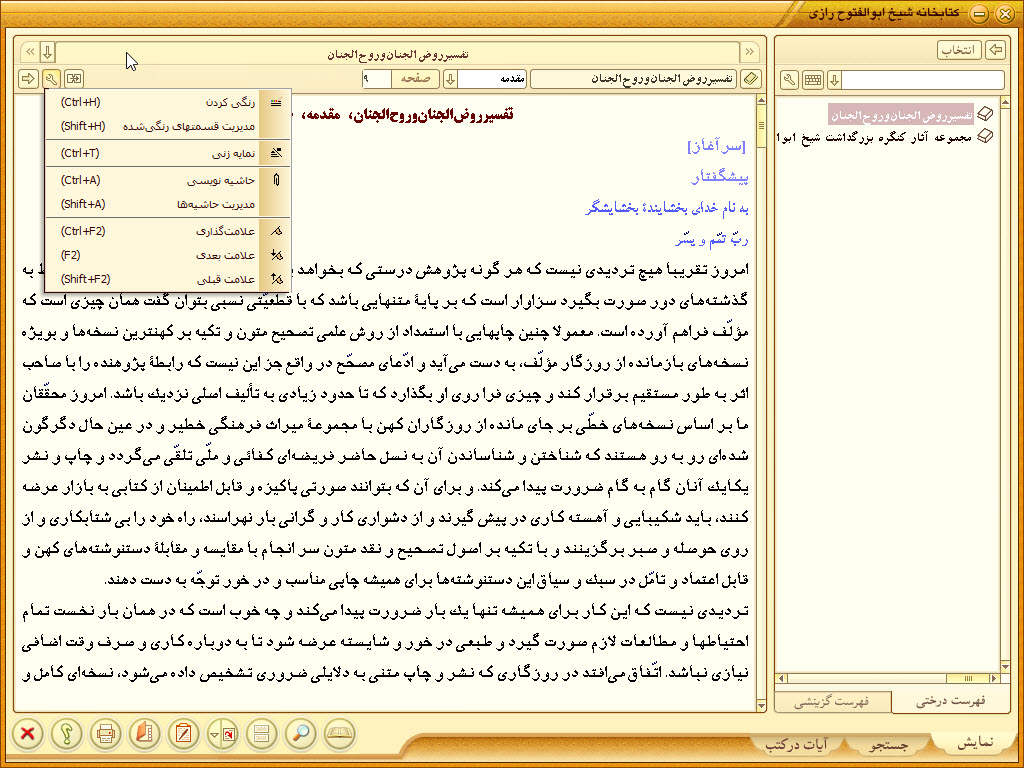 کتابخانه شیخ ابوالفتوح رازی
انتخاب
تفسیرروض الجنان‌وروح‌الجنان
مجموعه آثار کنگره بزرگداشت شیخ ابوا
فهرست درختی
فهرست گزینشی
تفسیرروض الجنان‌وروح‌الجنان
تفسیرروض الجنان‌وروح‌الجنان
مقدمه
صفحه
۹
رنگی کردن (Ctrl+H)
مدیریت قسمتهای رنگی‌شده (Shift+H)
نمایه زنی (Ctrl+T)
حاشیه نویسی (Ctrl+A)
مدیریت حاشیه‌ها (Shift+A)
علامت‌گذاری (Ctrl+F2)
علامت بعدی (F2)
علامت قبلی (Shift+F2)
تفسیرروض‌الجنان‌وروح‌الجنان، مقدمه،
[سرآغاز]
پیشگفتار
به نام خدای بخشایندهٔ بخشایشگر
ربّ تمّم و یسّر
امروز تقریبا هیچ تردیدی نیست که هر گونه پژوهش درستی که بخواهد
گذشته‌های دور صورت بگیرد سزاوار است که بر پایهٔ متنهایی باشد که با قطعیّتی نسبی بتوان گفت همان چیزی است که
مؤلّف فراهم آورده است. معمولا چنین چاپهایی با استمداد از روش علمی تصحیح متون و تکیه بر کهنترین نسخه‌ها و بویژه
نسخه‌های بازمانده از روزگار مؤلّف، به دست می‌آید و ادّعای مصحّح در واقع جز این نیست که رابطهٔ پژوهنده را با صاحب
اثر به طور مستقیم برقرار کند و چیزی فرا روی او بگذارد که تا حدود زیادی به تألیف اصلی نزدیك باشد. امروز محقّقان
ما بر اساس نسخه‌های خطّی بر جای مانده از روزگاران کهن با مجموعهٔ میراث فرهنگی خطیر و در عین حال دگرگون
شده‌ای رو به رو هستند که شناختن و شناساندن آن به نسل حاضر فریضه‌ای کفائی و ملّی تلقّی می‌گردد و چاپ و نشر
یکایك آنان گام به گام ضرورت پیدا می‌کند. و برای آن که بتوانند صورتی پاکیزه و قابل اطمینان از کتابی به بازار عرضه
کنند، باید شکیبایی و آهسته کاری در پیش گیرند و از دشواری کار و گرانی بار نهراسند، راه خود را بی شتابکاری و از
روی حوصله و صبر برگزینند و با تکیه بر اصول تصحیح و نقد متون سر انجام با مقایسه و مقابلهٔ دستنوشته‌های کهن و
قابل اعتماد و تامّل در سبك و سیاق این دستنوشته‌ها برای همیشه چاپی مناسب و در خور توجّه به دست دهند.
تردیدی نیست که این کار برای همیشه تنها یك بار ضرورت پیدا می‌کند و چه خوب است که در همان بار نخست تمام
احتیاطها و مطالعات لازم صورت گیرد و طبعی در خور و شایسته عرضه شود تا به دوباره کاری و صرف وقت اضافی
نیازی نباشد. اتّفاق می‌افتد در روزگاری که نشر و چاپ متنی به دلایلی ضروری تشخیص داده می‌شود، نسخه‌ای کامل و
نمایش
جستجو
آیات درکتب